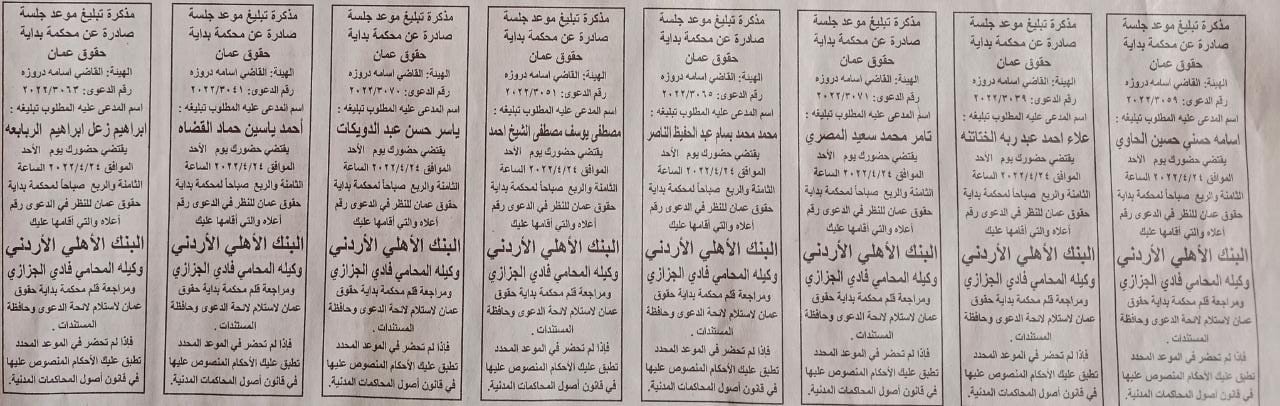 مذكرة تبليغ موعد جلسة
صادرة عن محكمة بداية
حقوق عمان
الهيئة: القاضي اسامه دروزه
رقم الدعوى: ٢٠٢٢/٣٠٥٩
اسم المدعى عليه المطلوب تبليغه :
اسامه حسني حسين الحاوي
يقتضي حضورك يوم الأحد
الموافق ٢٠٢٢/٤/٢٤ الساعة
الثامنة والربع صباحاً لمحكمة بداية
حقوق عمان للنظر في الدعوى رقم
أعلاه والتي أقامها عليك
البنك الأهلي الأردني
وكيله المحامي فادي الجزازي
ومراجعة قلم محكمة بداية حقوق
عمان لاستلام لائحة الدعوى وحافظة
المستندات .
فإذا لم تحضر في الموعد المحدد
تطبق عليك الأحكام المنصوص عليها
في قانون أصول المحاكمات المدنية.
مذكرة تبليغ موعد جلسة
صادرة عن محكمة بداية
حقوق عمان
الهيئة: القاضي اسامه دروزه
رقم الدعوى: ٢٠٢٢/٣٠٣٩
اسم المدعى عليه المطلوب تبليغه :
علاء احمد عبد ربه الختاتنه
يقتضي حضورك يوم الأحد
الموافق ٢٠٢٢/٤/٢٤ الساعة
الثامنة والربع صباحاً لمحكمة بداية
حقوق عمان للنظر في الدعوى رقم
أعلاه والتي أقامها عليك
البنك الأهلي الأردني
وكيله المحامي فادي الجزازي
ومراجعة قلم محكمة بداية حقوق
عمان لاستلام لائحة الدعوى وحافظة
المستندات .
فإذا لم تحضر في الموعد المحدد
تطبق عليك الأحكام المنصوص عليها
في قانون أصول المحاكمات المدنية.
مذكرة تبليغ موعد جلسة
صادرة عن محكمة بداية
حقوق عمان
الهيئة: القاضي اسامه دروزه
رقم الدعوى: ٢٠٢٢/٣٠٧١
اسم المدعى عليه المطلوب تبليغه :
تامر محمد سعيد المصري
يقتضي حضورك يوم الأحد
الموافق ٢٠٢٢/٤/٢٤ الساعة
الثامنة والربع صباحاً لمحكمة بداية
حقوق عمان للنظر في الدعوى رقم
أعلاه والتي أقامها عليك
البنك الأهلي الأردني
وكيله المحامي فادي الجزازي
ومراجعة قلم محكمة بداية حقوق
عمان لاستلام لائحة الدعوى وحافظة
المستندات .
فإذا لم تحضر في الموعد المحدد
تطبق عليك الأحكام المنصوص عليها
في قانون أصول المحاكمات المدنية.
مذكرة تبليغ موعد جلسة
صادرة عن محكمة بداية
حقوق عمان
الهيئة: القاضي اسامه دروزه
رقم الدعوى: ٢٠٢٢/٣٠٦٥
اسم المدعى عليه المطلوب تبليغه :
محمد محمد بسام عبد الحفيظ الناصر
يقتضي حضورك يوم الأحد
الموافق ٢٠٢٢/٤/٢٤ الساعة
الثامنة والربع صباحاً لمحكمة بداية
حقوق عمان للنظر في الدعوى رقم
أعلاه والتي أقامها عليك
البنك الأهلي الأردني
وكيله المحامي فادي الجزازي
ومراجعة قلم محكمة بداية حقوق
عمان لاستلام لائحة الدعوى وحافظة
المستندات .
فإذا لم تحضر في الموعد المحدد
تطبق عليك الأحكام المنصوص عليها
في قانون أصول المحاكمات المدنية.
مذكرة تبليغ موعد جلسة
صادرة عن محكمة بداية
حقوق عمان
الهيئة: القاضي اسامه دروزه
رقم الدعوى: ٢٠٢٢/٣٠٥١
اسم المدعى عليه المطلوب تبليغه :
مصطفى يوسف مصطفى الشيخ احمد
يقتضي حضورك يوم الأحد
الموافق ٢٠٢٢/٤/٢٤ الساعة
الثامنة والربع صباحاً لمحكمة بداية
حقوق عمان للنظر في الدعوى رقم
أعلاه والتي أقامها عليك
البنك الأهلي الأردني
وكيله المحامي فادي الجزازي
ومراجعة قلم محكمة بداية حقوق
عمان لاستلام لائحة الدعوى وحافظة
المستندات .
فإذا لم تحضر في الموعد المحدد
تطبق عليك الأحكام المنصوص عليها
في قانون أصول المحاكمات المدنية.
مذكرة تبليغ موعد جلسة
صادرة عن محكمة بداية
حقوق عمان
الهيئة: القاضي اسامه دروزه
رقم الدعوى: ٢٠٢٢/٣٠٧٠
اسم المدعى عليه المطلوب تبليغه :
ياسر حسن عبد الدويكات
يقتضي حضورك يوم الأحد
الموافق ٢٠٢٢/٤/٢٤ الساعة
الثامنة والربع صباحاً لمحكمة بداية
حقوق عمان للنظر في الدعوى رقم
أعلاه والتي أقامها عليك
البنك الأهلي الأردني
وكيله المحامي فادي الجزازي
ومراجعة قلم محكمة بداية حقوق
عمان لاستلام لائحة الدعوى وحافظة
المستندات .
فإذا لم تحضر في الموعد المحدد
تطبق عليك الأحكام المنصوص عليها
في قانون أصول المحاكمات المدنية.
مذكرة تبليغ موعد جلسة
صادرة عن محكمة بداية
حقوق عمان
الهيئة: القاضي اسامه دروزه
رقم الدعوى: ٢٠٢٢/٣٠٤١
اسم المدعى عليه المطلوب تبليغه :
أحمد ياسين حماد القضاه
يقتضي حضورك يوم الأحد
الموافق ٢٠٢٢/٤/٢٤ الساعة
الثامنة والربع صباحاً لمحكمة بداية
حقوق عمان للنظر في الدعوى رقم
أعلاه والتي أقامها عليك
البنك الأهلي الأردني
وكيله المحامي فادي الجزازي
ومراجعة قلم محكمة بداية حقوق
عمان لاستلام لائحة الدعوى وحافظة
المستندات .
فإذا لم تحضر في الموعد المحدد
تطبق عليك الأحكام المنصوص عليها
في قانون أصول المحاكمات المدنية.
مذكرة تبليغ موعد جلسة
صادرة عن محكمة بداية
حقوق عمان
الهيئة: القاضي اسامه دروزه
رقم الدعوى: ٢٠٢٢/٣٠٦٣
اسم المدعى عليه المطلوب تبليغه :
ابراهيم زعل ابراهيم الربايعه
يقتضي حضورك يوم الأحد
الموافق ٢٠٢٢/٤/٢٤ الساعة
الثامنة والربع صباحاً لمحكمة بداية
حقوق عمان للنظر في الدعوى رقم
أعلاه والتي أقامها عليك
البنك الأهلي الأردني
وكيله المحامي فادي الجزازي
ومراجعة قلم محكمة بداية حقوق
عمان لاستلام لائحة الدعوى وحافظة
المستندات .
فإذا لم تحضر في الموعد المحدد
تطبق عليك الأحكام المنصوص عليها
في قانون أصول المحاكمات المدنية.